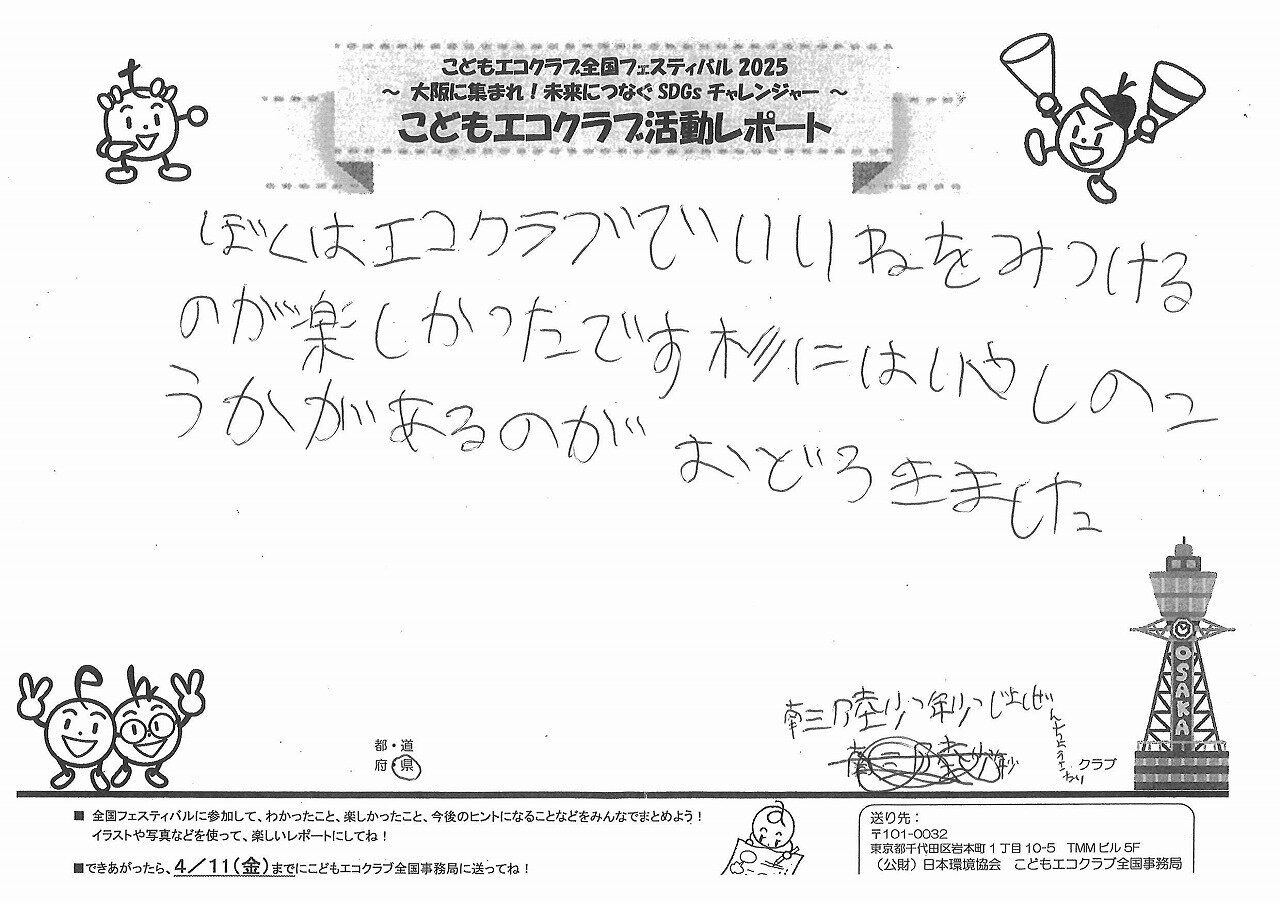 こどもエコクラブ全国フェスティバル 2025
～ 大阪に集まれ！未来につなぐ SDGs チャレンジャー ～
こどもエコクラブ活動レポート
ぼくはエコクラブでいいねをみつける
のが楽しかったです杉にはいやしのこ
うかがあるのがおどろきました
OSAKA
都・道
府・県
南三陸少年少
クラブ
■ 全国フェスティバルに参加して、わかったこと、楽しかったこと、今後のヒントになることなどをみんなでまとめよう！
イラストや写真などを使って、楽しいレポートにしてね！
■できあがったら、4／11(金)までにこどもエコクラブ全国事務局に送ってね！
送り先：
〒101-0032
東京都千代田区岩本町 1 丁目 10-5　TMM ビル 5F
（公財）日本環境協会　こどもエコクラブ全国事務局